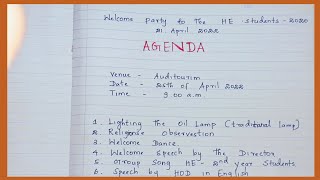 Welcome Party to The HE students - 2020
21 April 2022
AGENDA
Venue - Auditourim
Date - 26th of April 2022
Time - 9 00 a.m
1. Lighting The Oil Lamp (traditural lamp)
2. Religonse Observestion
3. Welcome Dance.
4. Welcome Speech by The Director
5. Group Song HE - 2nd year Students
6. Speech by HOD in English